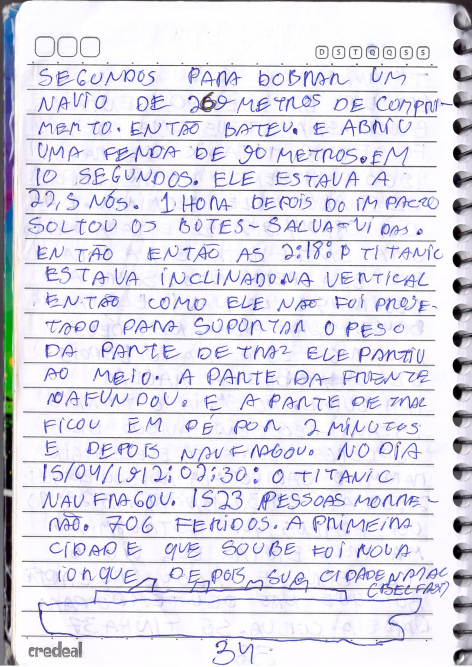 D S T Q Q S S
SEGUNDOS PARA DOBRAR UM
NAVIO DE 269 METROS DE COMPRI-
MENTO. ENTÃO BATEU. E ABRIU
UMA FENDA DE 90 METROS. EM
10 SEGUNDOS. ELE ESTAVA A
22,5 NÓS. 1 HORA DEPOIS DO IMPACTO
SOLTOU OS BOTES-SALVA-VIDAS.
ENTÃO ENTÃO AS 2:18: O TITANIC
ESTAVA INCLINADO NA VERTICAL
ENTÃO COMO ELE NÃO FOI PROJE-
TADO PARA SUPORTAR O PESO
DA PARTE DE TRAZ ELE PARTIU
AO MEIO. A PARTE DA FRENTE
NAFUNDOU. E A PARTE DE TRAZ
FICOU EM PÉ POR 2 MINUTOS
E DEPOIS NAUFRAGOU. NO DIA
15/04/1912: 02:30: O TITANIC
NAUFRAGOU. 1523 PESSOAS MORRE-
RÃO. 706 FERIDOS. A PRIMEIRA
CIDADE QUE SOUBE FOI NOVA
IORQUE DEPOIS SUA CIDADE NATAL
(BELFAST)
credeal
34